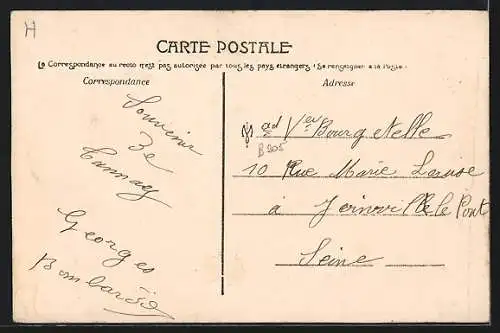 H
CARTE POSTALE
La Correspondance au recto n'est pas autorisée par tous les pays étrangers (Se renseigner à la Poste)
Correspondance
Adresse
Souvenir
De
Tannay
Georges
Mad Vve Bourg
B205
10 Rue Marie Louise
à Joinville le Pont
Seine